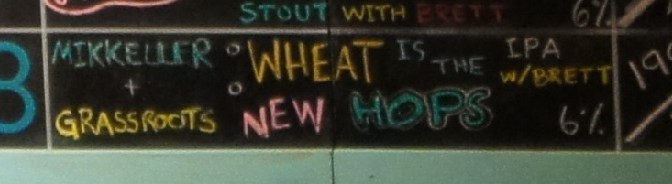 STOUT WITH BRETT 6%
MIKKELLER + GRASSROOTS : WHEAT IS THE NEW HOPS IPA W/BRETT 6%